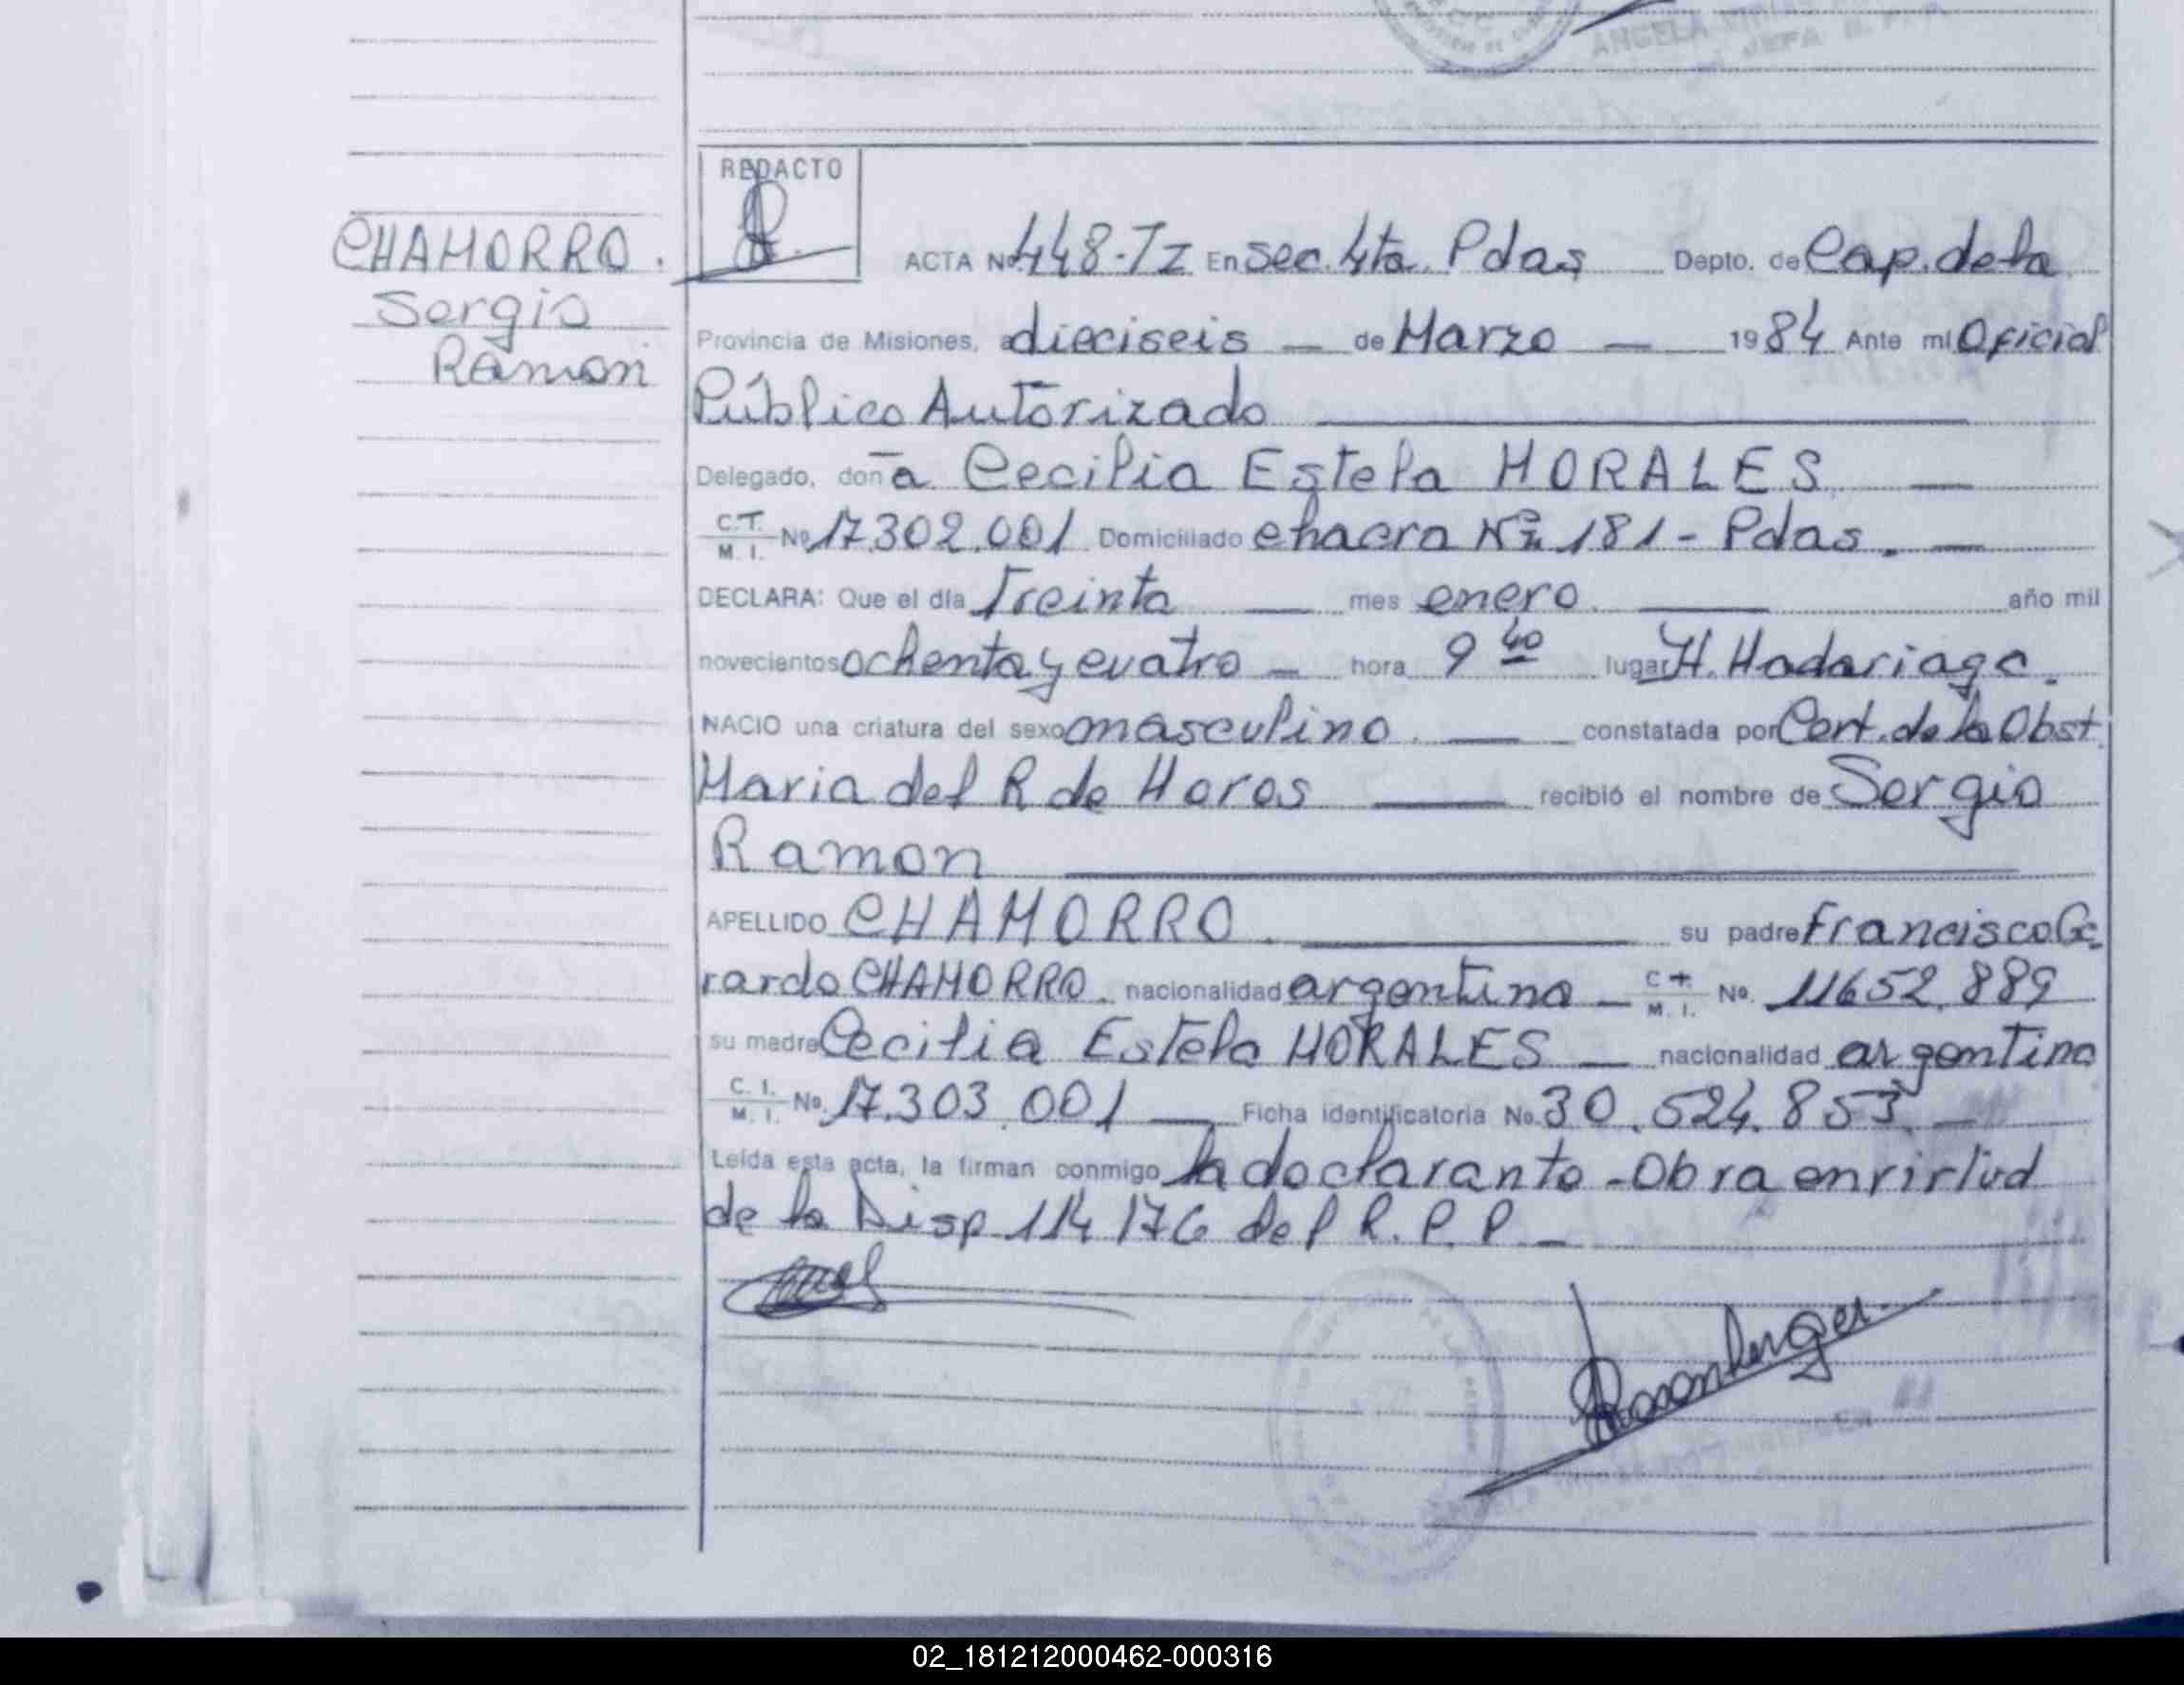 ANGELA
JEFA
REDACTO
CHAMORRO.
Sergio
Ramon
ACTA Nº 448-Tz En Sec. 4ta. Pdas Depto. de Cap. de la
Provincia de Misiones, a dieciseis — de Marzo — 1984 Ante mi Oficial
Público Autorizado
Delegado, don a Cecilia Estela MORALES —
C.T. M. I. Nº 17.302.001 Domiciliado chacra Nº 181 - Pdas. —
DECLARA: Que el día Treinta — mes enero. — año mil
novecientos ochenta y cuatro — hora 9 40 lugar H. Madariaga.
NACIO una criatura del sexo masculino. — constatada por Cert. de la Obst.
Maria del R de — recibió el nombre de Sergio
Ramon
APELLIDO CHAMORRO. — su padre Francisco Ge-
rardo CHAMORRO. nacionalidad argentina — M. I. Nº. 11652.889
su madre Cecilia Estela MORALES — nacionalidad argentina
C. I. M. I. Nº. 17.303.001 — Ficha identificatoria No. 30.524.853 —
Leída esta acta, la firman conmigo la declarante - Obra en virtud
de la Disp 114/76 del R. P. P. —
Rosenberger
02_181212000462-000316